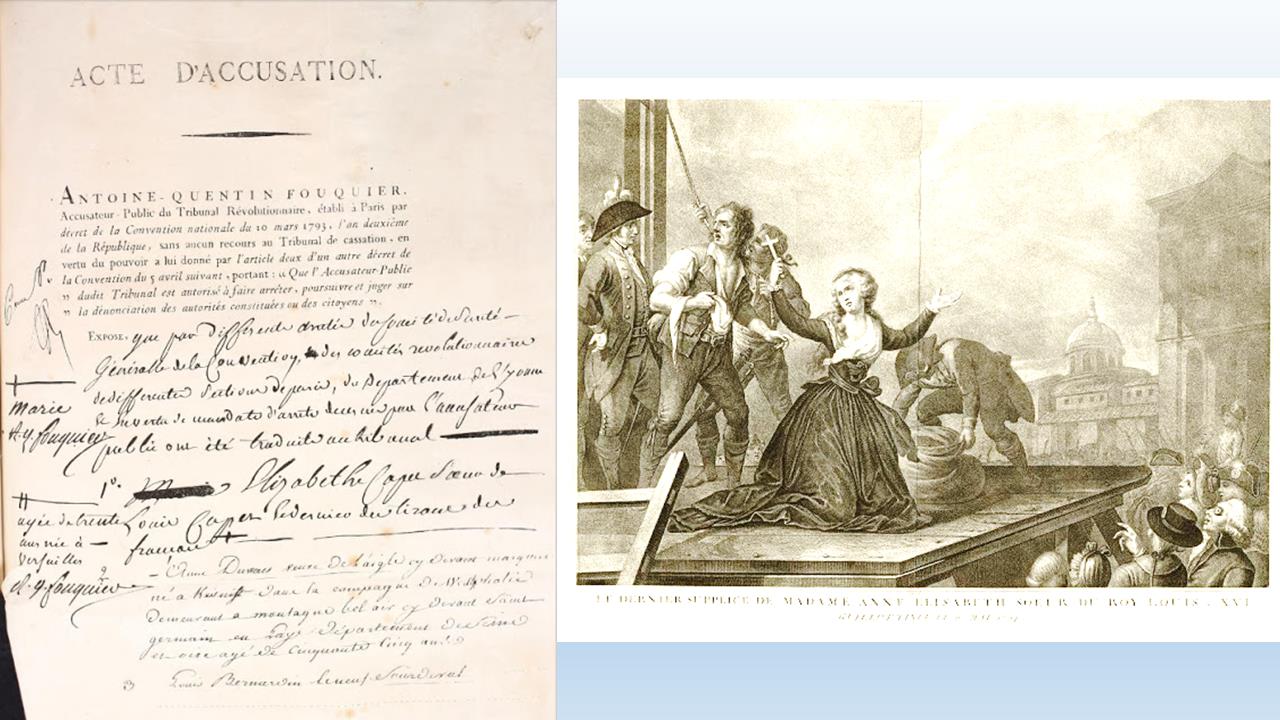 ACTE D'ACCUSATION.
ANTOINE-QUENTIN FOUQUIER.
Accusateur-Public du Tribunal Révolutionnaire, établi à Paris par
décret de la Convention nationale du 10 mars 1793, l'an deuxième
de la République, sans aucun recours au Tribunal de cassation, en
vertu du pouvoir a lui donné par l'article deux d'un autre décret de
la Convention du 5 avril suivant, portant: « Que l'Accusateur-Public
» dudit Tribunal est autorisé à faire arrêter, poursuivre et juger sur
» la dénonciation des autorités constituées ou des citoyens ».
EXPOSE, que par différents arrêtés du
Générale de la Convention, des comités révolutionnaire
de différentes Sections de paris, du Département de
en vertu de mandats d'arrêts par l'accusateur
public ont été traduits au tribunal
Marie
A. q. fouquier
1º. Elizabethe Capet Sœur de
Louis Capet dernier des tirans des
français
agée de trente
ans née à
Versuilles
A. q. fouquier
2
veuve de l'aigle cy devant marquise
né à dans la
demeurant a montagne bel air cy devant Saint
germain en Laye Département de Seine
et oise agé de Cinquante Cinq ans
3 Louis Bernardin leneuf Sourdeval
LE DERNIER SUPPLICE DE MADAME ANNE ELISABETH SOEUR DU ROY LOUIS XVI